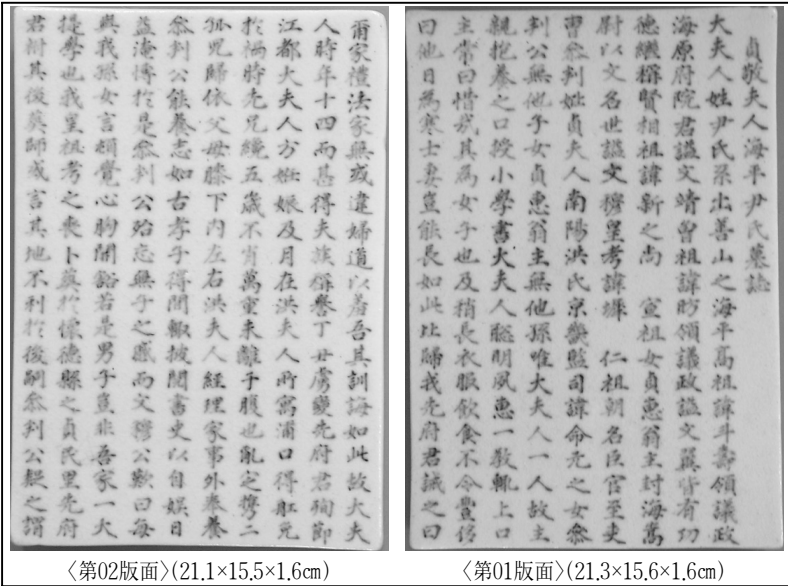 貞敬夫人海平尹氏墓誌
大夫人姓尹氏系出善山之海平高祖諱斗壽領議政
海原府院君謚文靖曾祖諱昉領議政謚文翼皆有功
德繼稱賢相祖諱新之尚　宣祖女貞惠翁主封海嵩
尉以文名世謚文穆皇考諱墀　仁祖朝名臣官至吏
曹參判妣貞夫人南陽洪氏京畿監司諱命元之女參
判公無他子女貞惠翁主無他孫唯大夫人一人故主
親抱養之口授小學書大夫人聡明夙惠一教輒上口
主常曰惜哉其為女子也及稍長衣服飲食不令豊侈
曰他日為寒士妻豈能長如此比歸我先府君誡之曰
〈第01版面〉(21.3×15.6×1.6㎝)
爾家禮法家無或違婦道以羞吾其訓誨如此故大夫
人時年十四而甚得夫族稱譽丁丑虜變先府君殉節
江都大夫人方姙娠及月在洪夫人所寓浦口得舡免
於禍時先兄纔五歲不肖萬重未離于腹也亂定携二
孤兒歸依父母膝下內左右洪夫人經理家事外奉養
參判公能養志如古孝子得間輒披閱書史以自娛日
益淹博於是參判公殆忘無子之慼而文穆公歎曰每
與我孫女言頓覺心胸開豁若是男子豈非吾家一大
提學也我皇祖考之喪卜葬於懷德縣之貞民里先府
君祔其後葬師或言其地不利於後嗣參判公疑之謂
〈第02版面〉(21.1×15.5×1.6㎝)